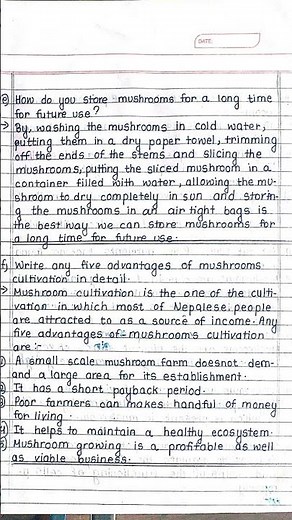 DATE
e) How do you store mushrooms for a long time
for future use?
→ By, washing the mushrooms in cold water,
putting them in a dry paper towel, trimming
off the ends of the stems and slicing the
mushrooms, putting the sliced mushroom in a
container filled with water, allowing the mu-
shroom to dry completely in sun and storin-
g the mushrooms in an air tight bags is
the best way we can store mushrooms for
a long time for future use.
f) Write any five advantages of mushrooms
cultivation in detail.
→ Mushroom cultivation is the one of the culti-
vation in which most of Nepalese people
are attracted to as a source of income. Any
five advantages of mushrooms cultivation
are :-
A small scale mushroom farm doesnot dem-
and a large area for its establishment.
It has a short payback period.
Poor farmers can makes handful of money
for living.
It helps to maintain a healthy ecosystem.
Mushroom growing is a profitable as well
as viable business.